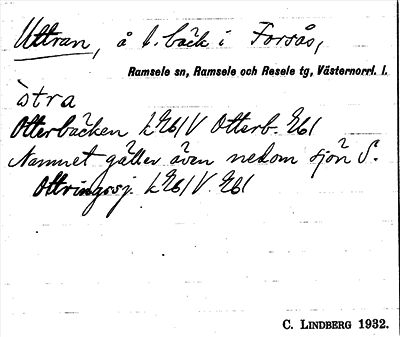 Uttran, å l. bäck i Forsås,
Ramsele sn, Ramsele och Resele tg, Västernorrl. l.
östra
Otterbäcken
Otterb.
Namnet gäller även nedom sjön S.
Ottringssj.
C. LINDBERG 1932.